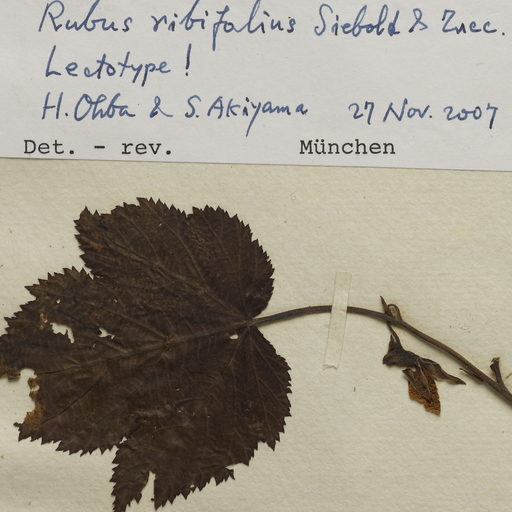 Rubus ribifolius Siebold & Zucc.
Lectotype!
H. Ohba & S. Akiyama 27 Nov. 2007
Det. - rev. München